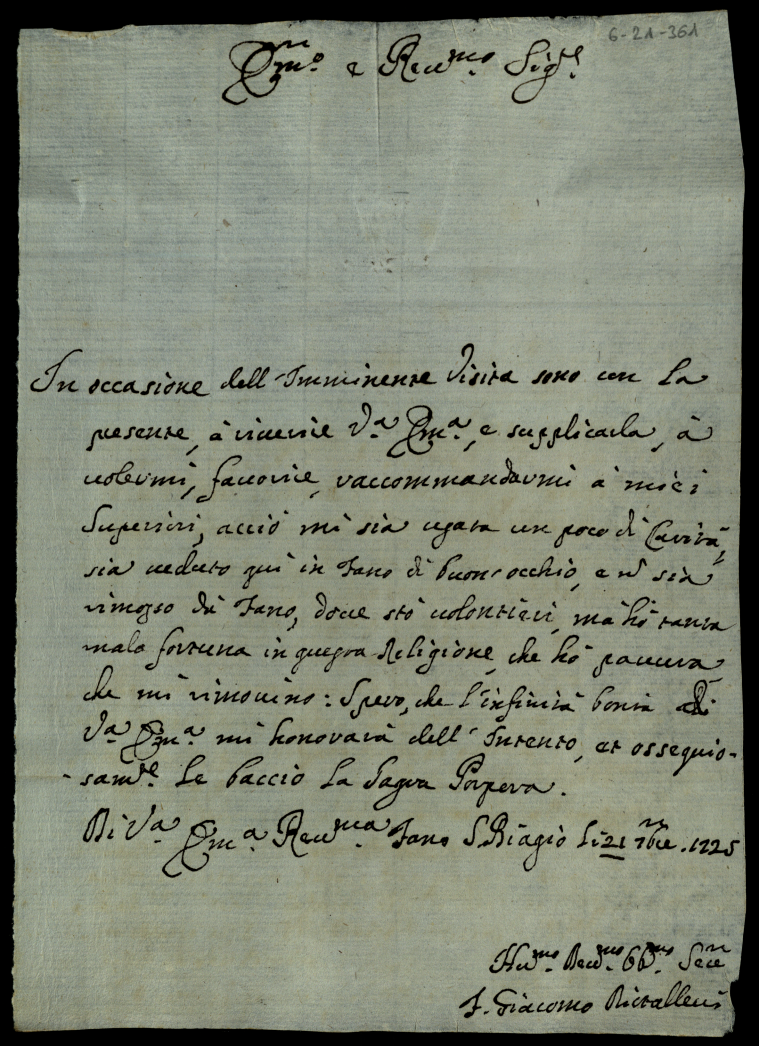 6-21-361
Em:mo e Reu:mo Sig:re
In occasione dell'Imminente Visita sono con la
presente, à riuerire V:a Em:a, e supplicarla, à
uolermi, fauorire, raccommandarmi à miei
Superiori, acciò mi sia usata un poco di Carità,
sia ueduto qui in Fano di buon'occhio, e ñ sia
rimosso da Fano, doue stò uolontieri, ma hò tanta
mala fortuna in questa Religione, che hò pauura
che mi rimouino: Spero, che l'infinita bontà di
V:a Em:a mi honorarà dell'Intento, et ossequio-
sam:te le baccio la Sagra Porpora.
Di V:a Em:a Reu:ma Fano S. Biagio li 21 7bre. 1725
Hu:mo Deu:mo Ob:mo Ser:re
F. Giacomo